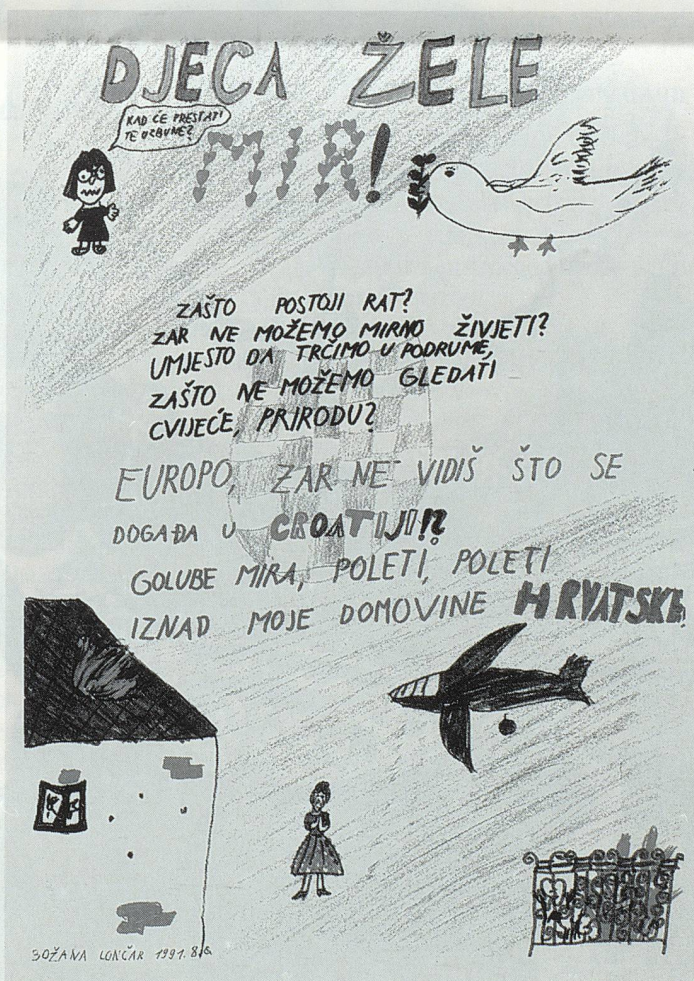 DJECA ŽELE
MIR!
KAD ĆE PRESTATI
TE UZBUNE?
ZAŠTO POSTOJI RAT?
ZAR NE MOŽEMO MIRNO ŽIVJETI?
UMJESTO DA TRČIMO U PODRUME,
ZAŠTO NE MOŽEMO GLEDATI
CVIJEĆE, PRIRODU?
EUROPO, ZAR NE VIDIŠ ŠTO SE
DOGAĐA U CROATIJI!?
GOLUBE MIRA, POLETI, POLETI
IZNAD MOJE DOMOVINE HRVATSKE!
BOŽANA LONČAR 1991. 8.G